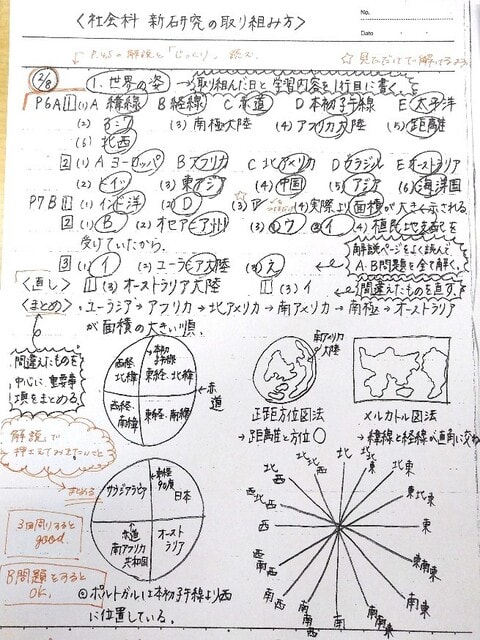 〈社会科 新研究の取り組み方〉
No.
Date
P.4,5の解説を「じっくり」読む
☆見ただけで解ってるみる
2/8 1.世界の姿 →取り組んだ日と学習内容を1行目に書く。
P6A 1 (1)A 緯線 B 経線 C 赤道 D 本初子午線 E 太平洋
(2) (3)南極大陸 (4)アフリカ大陸 (5)距離
(6)北西
2 (1)A ヨーロッパ B アフリカ C 北アメリカ D E オーストラリア
(2)ドイツ (3)東アジア (4)中国 (5)アジア (6)海洋国
P7B 1 (1)インド洋 (2)D (3) (4)実際より面積が大きく示される
2 (1)B (2)オセアニア州 (3)①ウ ②イ (4)植民地支配を
受けていたから。
3 (1)イ (2)ユーラシア大陸 (3)え
解説ページをよく読んで
A、B問題を全て解く。
〈直し〉 1 (3)オーストラリア大陸 1 (3)イ ←間違えたものを直す。
〈まとめ〉・ユーラシア→アフリカ→北アメリカ→南アメリカ→南極→オーストラリア
が面積の大きい順。
間違えたものを
中心に重要事
項をまとめる。
西経・北緯
本初子午線
東経・北緯
西経・南緯
東経・南緯
赤道
南アメリカ大陸
正距方位図法
→距離と方位○
メルカトル図法
→緯線と経線が直角に交わ
「解説」で
押さえておきたいこと
まとめる
サウジアラビア
東経90度
日本
赤道
南アフリカ共和国
オーストラリア
3回周りすると
good
B問題をすると
OK.
◎ポルトガルは本初子午線より西
に位置している。
北
北北東
北東
東北東
東
東南東
南東
南南東
南
南南西
南西
西南西
西
西北西
北西
北北西